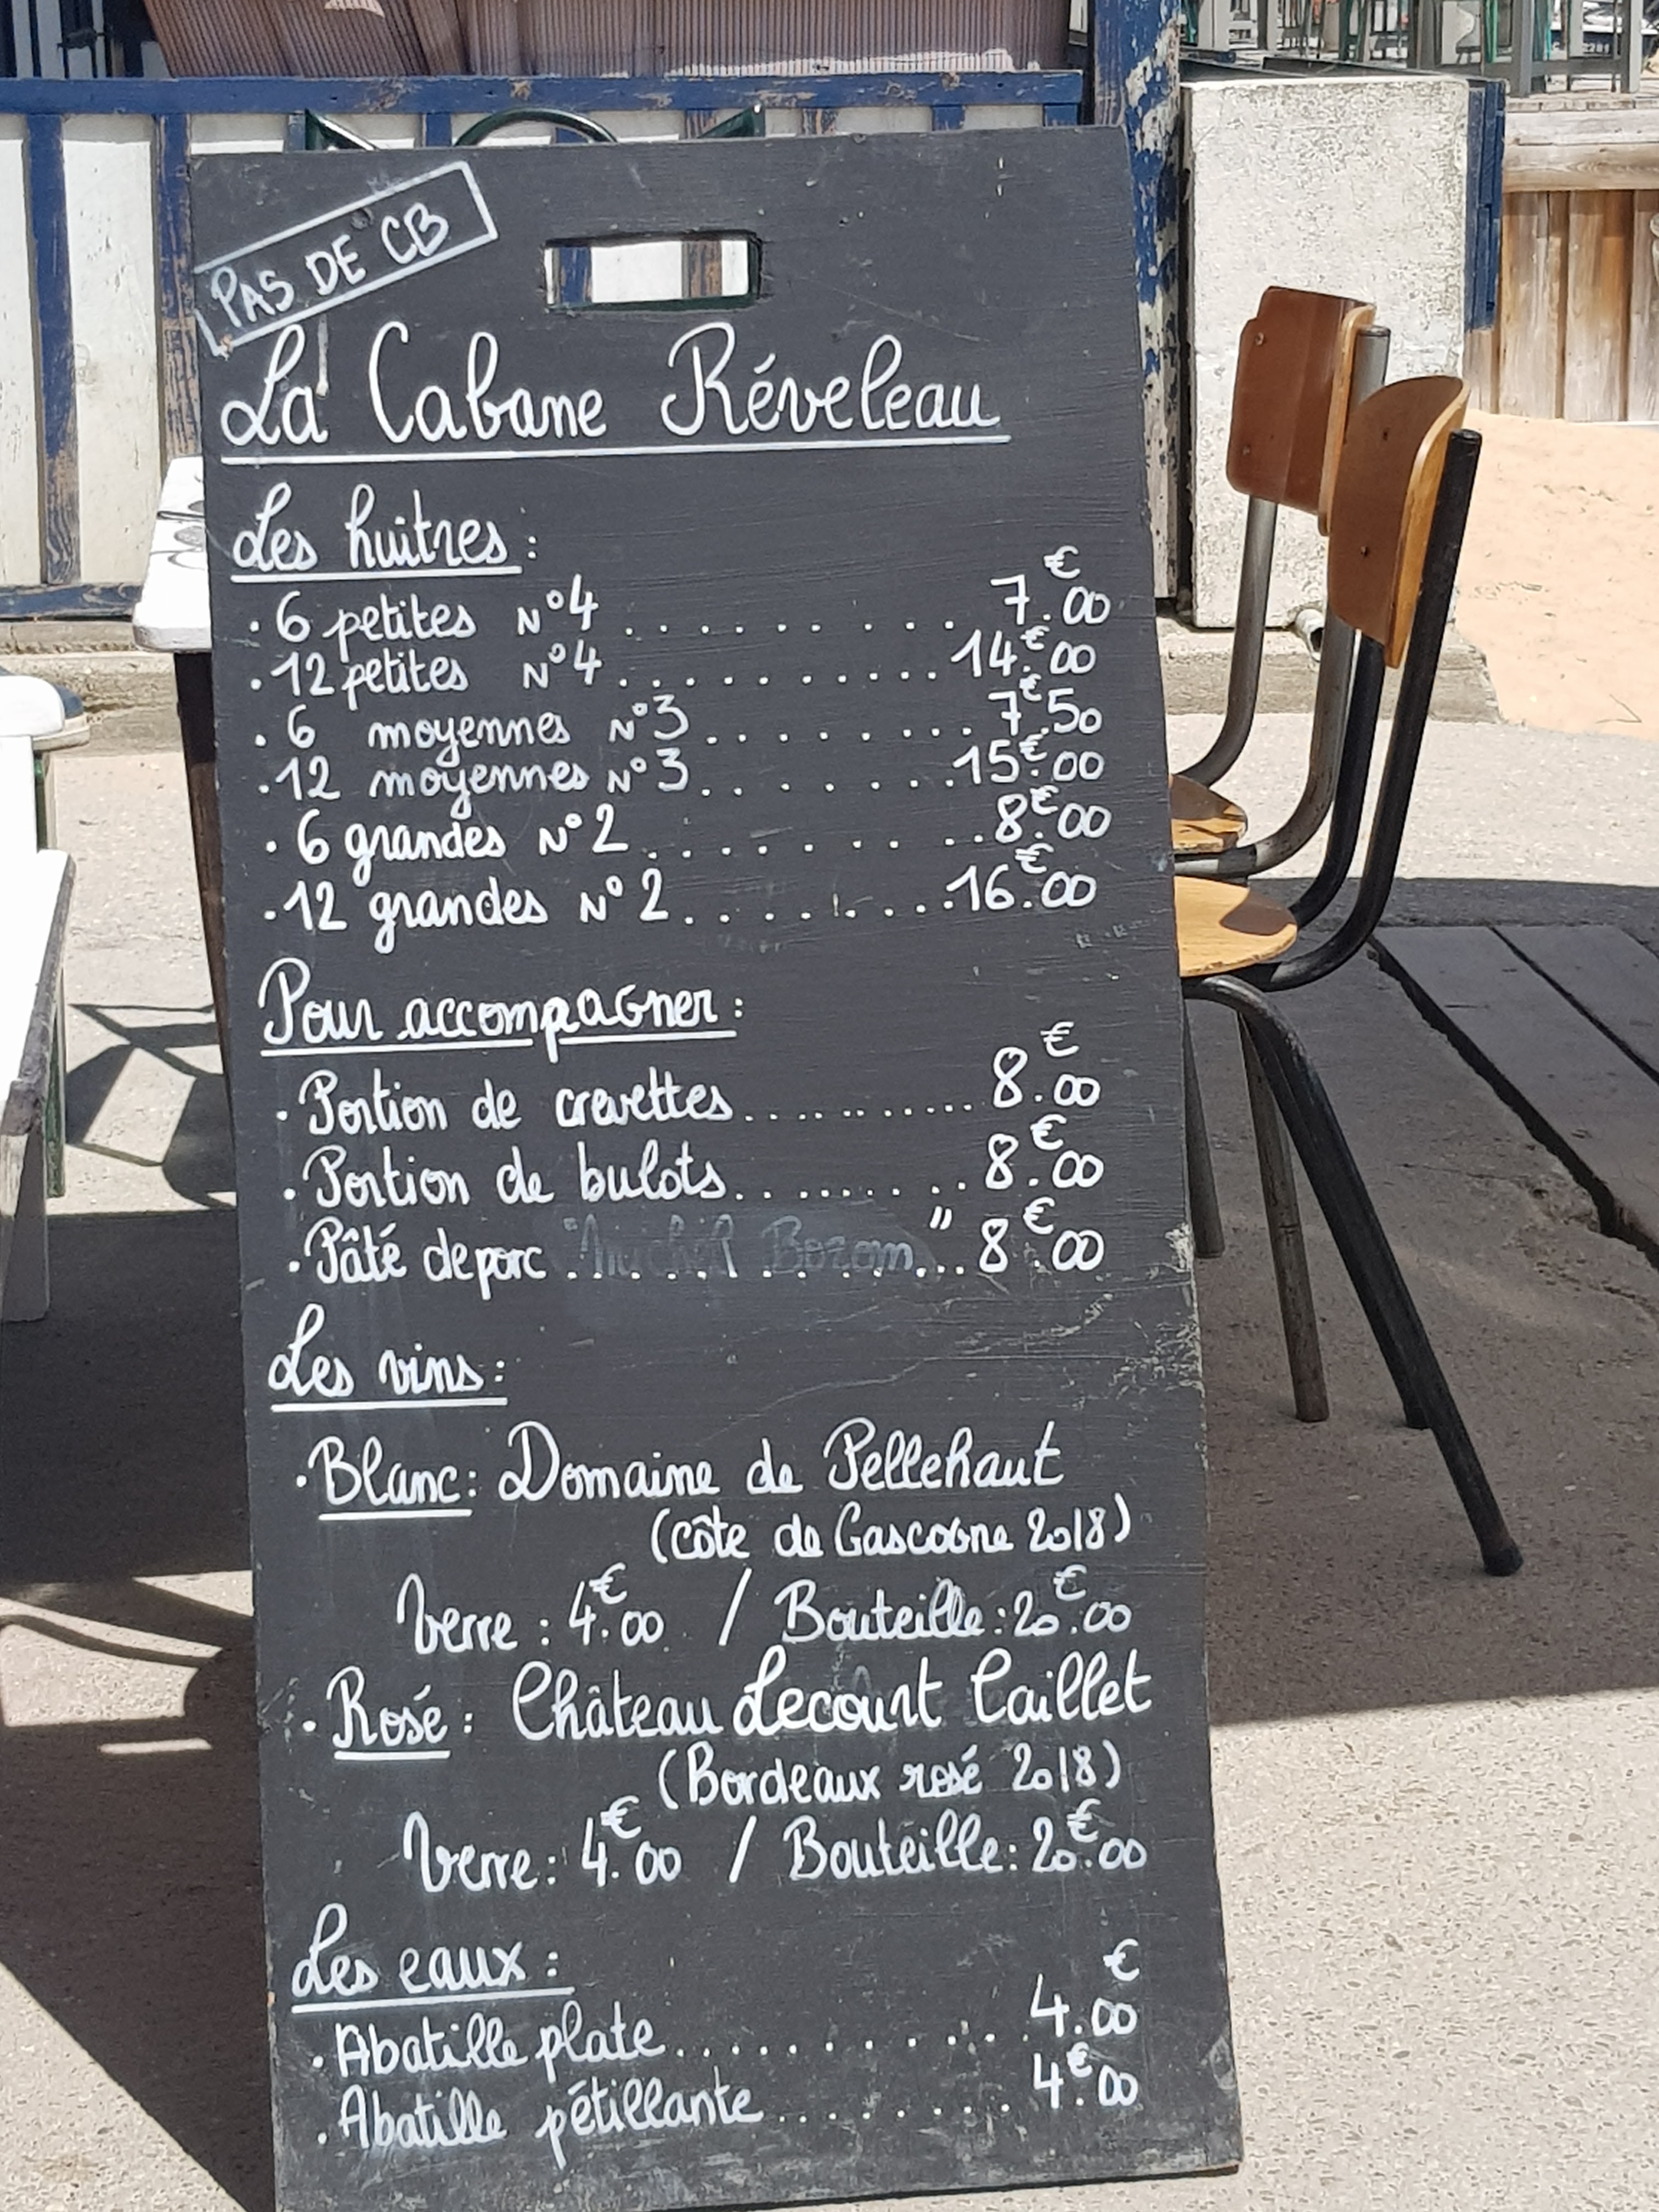 PAS DE CB
La Cabane Réveleau
Les huitres :
. 6 petites N°4 .......... 7.€00
. 12 petites N°4 ........... 14.€00
. 6 moyennes N°3 ......... 7.€50
. 12 moyennes N°3 ......... 15.€00
. 6 grandes N°2 .......... 8.€00
. 12 grandes N°2 ......... 16.€00
Pour accompagner :
. Portion de crevettes ............ 8.€00
. Portion de bulots ......... 8.€00
. Pâté de porc ............ " 8.€00
Les vins :
. Blanc : Domaine de Pellehaut
(côte de Gascogne 2018)
Verre : 4.€00 / Bouteille : 20.€00
. Rosé : Château Lecourt Caillet
(Bordeaux rosé 2018)
Verre : 4.€00 / Bouteille : 20.€00
Les eaux :
. Abatille plate ........... 4.€00
. Abatille pétillante ......... 4.€00